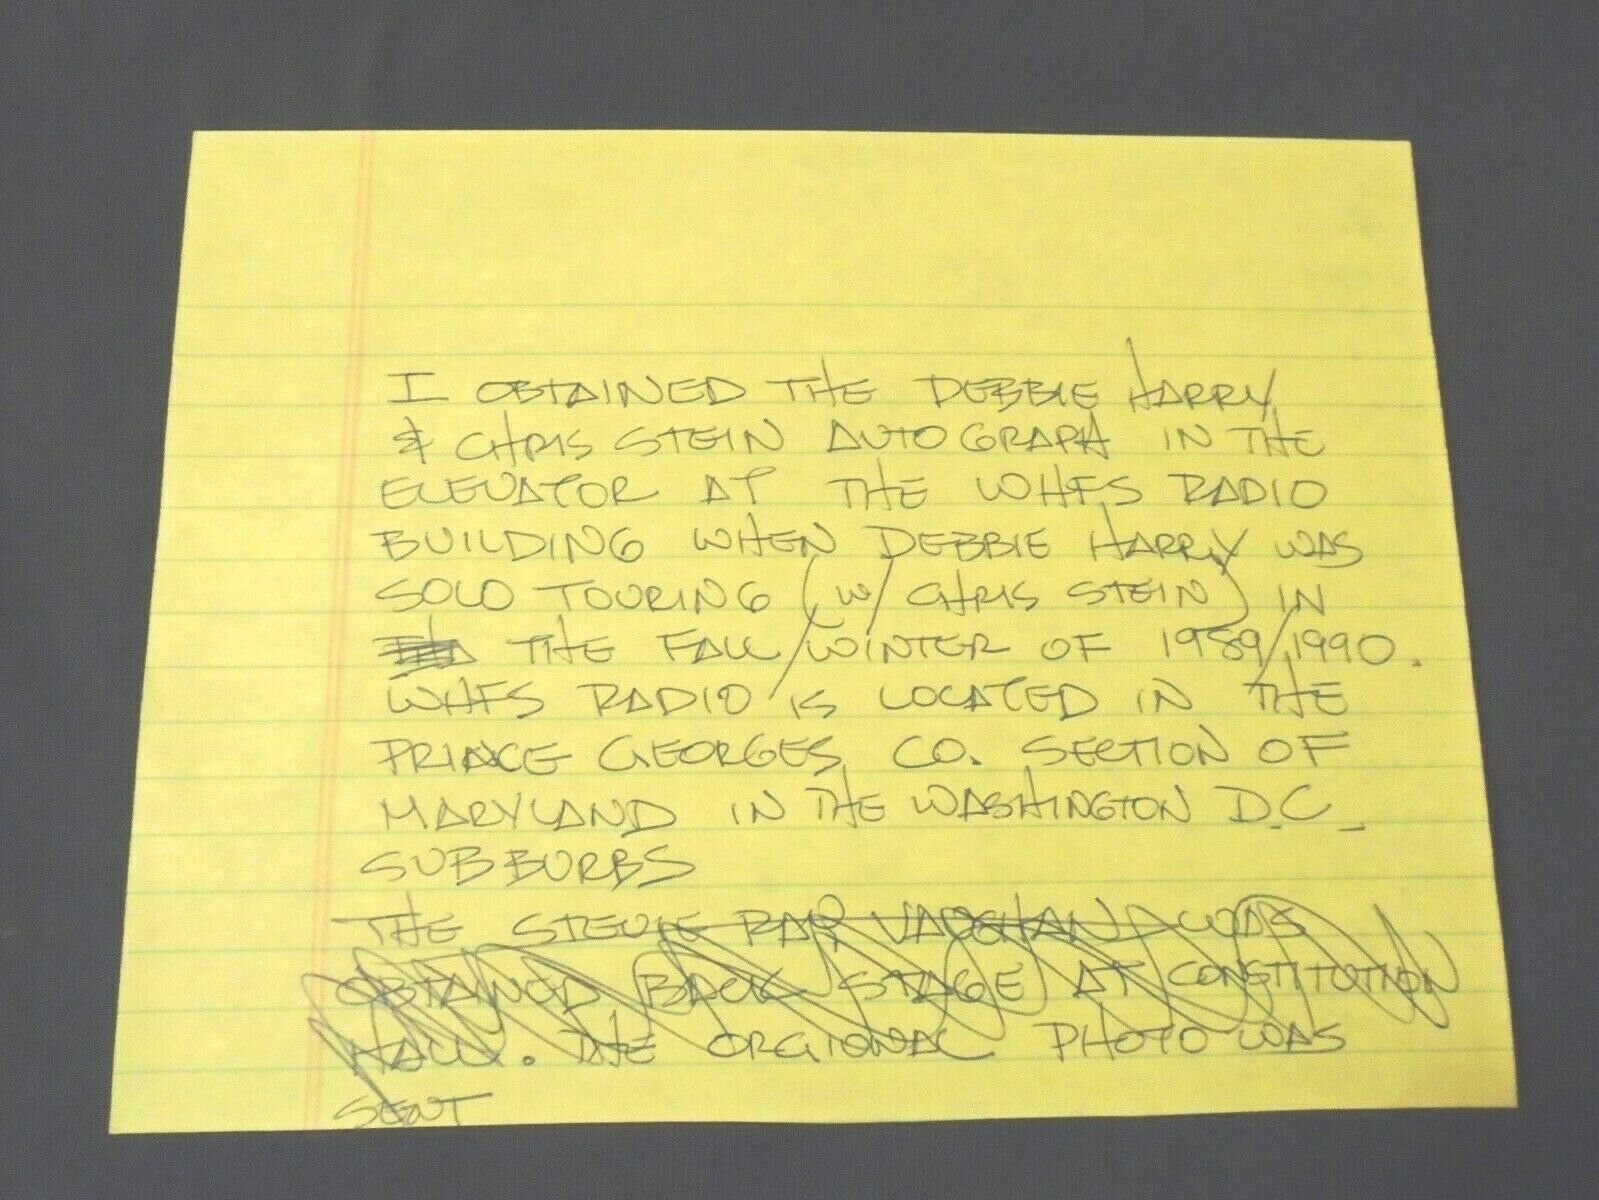 I OBTAINED THE DEBBIE HARRY
& CHRIS STEIN AUTOGRAPH IN THE
ELEVATOR AT THE WHFS RADIO
BUILDING WHEN DEBBIE HARRY WAS
SOLO TOURING (W/ CHRIS STEIN) IN
THE FALL/WINTER OF 1989/1990.
WHFS RADIO IS LOCATED IN THE
PRINCE GEORGES CO. SECTION OF
MARYLAND IN THE WASHINGTON D.C.
SUBBURBS
THE STEVIE RAY VAUGHAN WAS
OBTAINED BACK STAGE AT CONSTITUTION
HALL. THE ORGIONAL PHOTO WAS
SENT